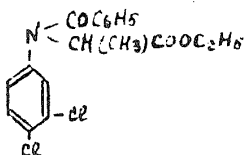 COC6H5
N
CH(CH3)COOC2H5
-Cl
Cl